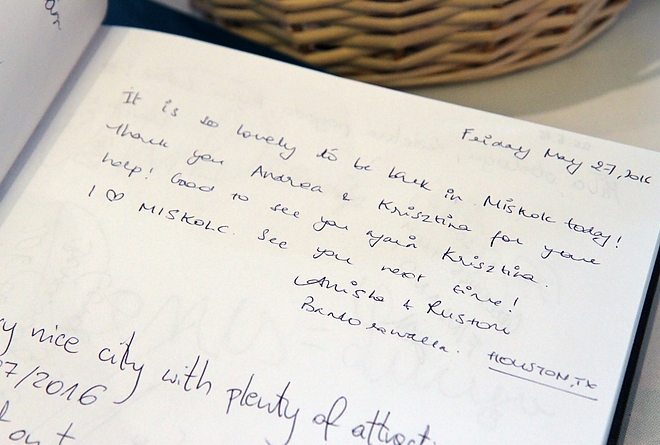 Friday May 27, 2016
It is so lovely to be back in Miskolc today!
Thank you Andrea & Krisztina for your
help! Good to see you again Krisztina.
I ♡ MISKOLC. See you next time!
Anisha & Rustom
HOUSTON, TX
nice city with plenty of
7/2016